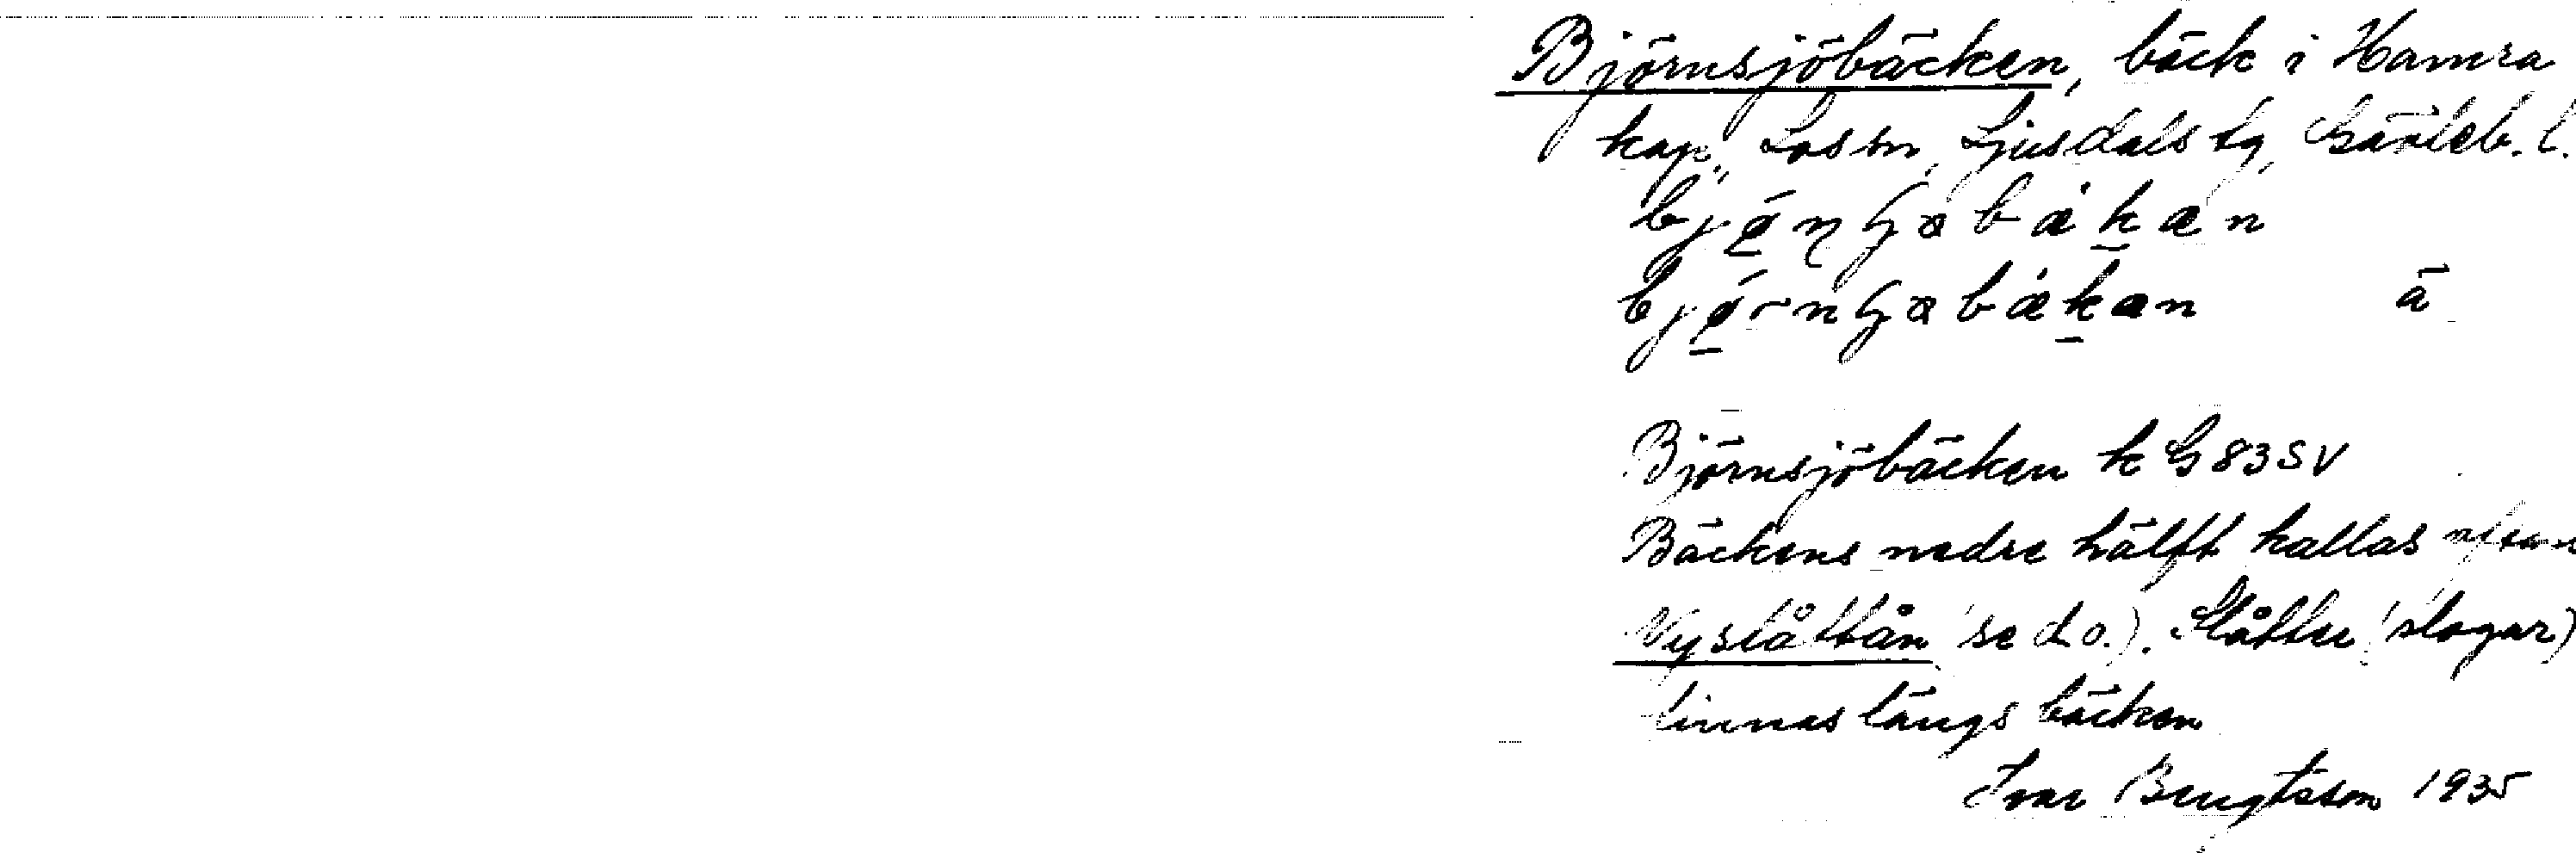 Björnsjöbäcken, bäck i Hamra
kap., Los sn, Ljusdals tg, Gävleb. l.
ā
Björnsjöbäcken k G 83 SV
Bäckens nedre hälft kallas oftast
Nyslåttån (se d.o.). Slåtter (slogar)
finnas längs bäcken
Ivar Bengtsson 1935